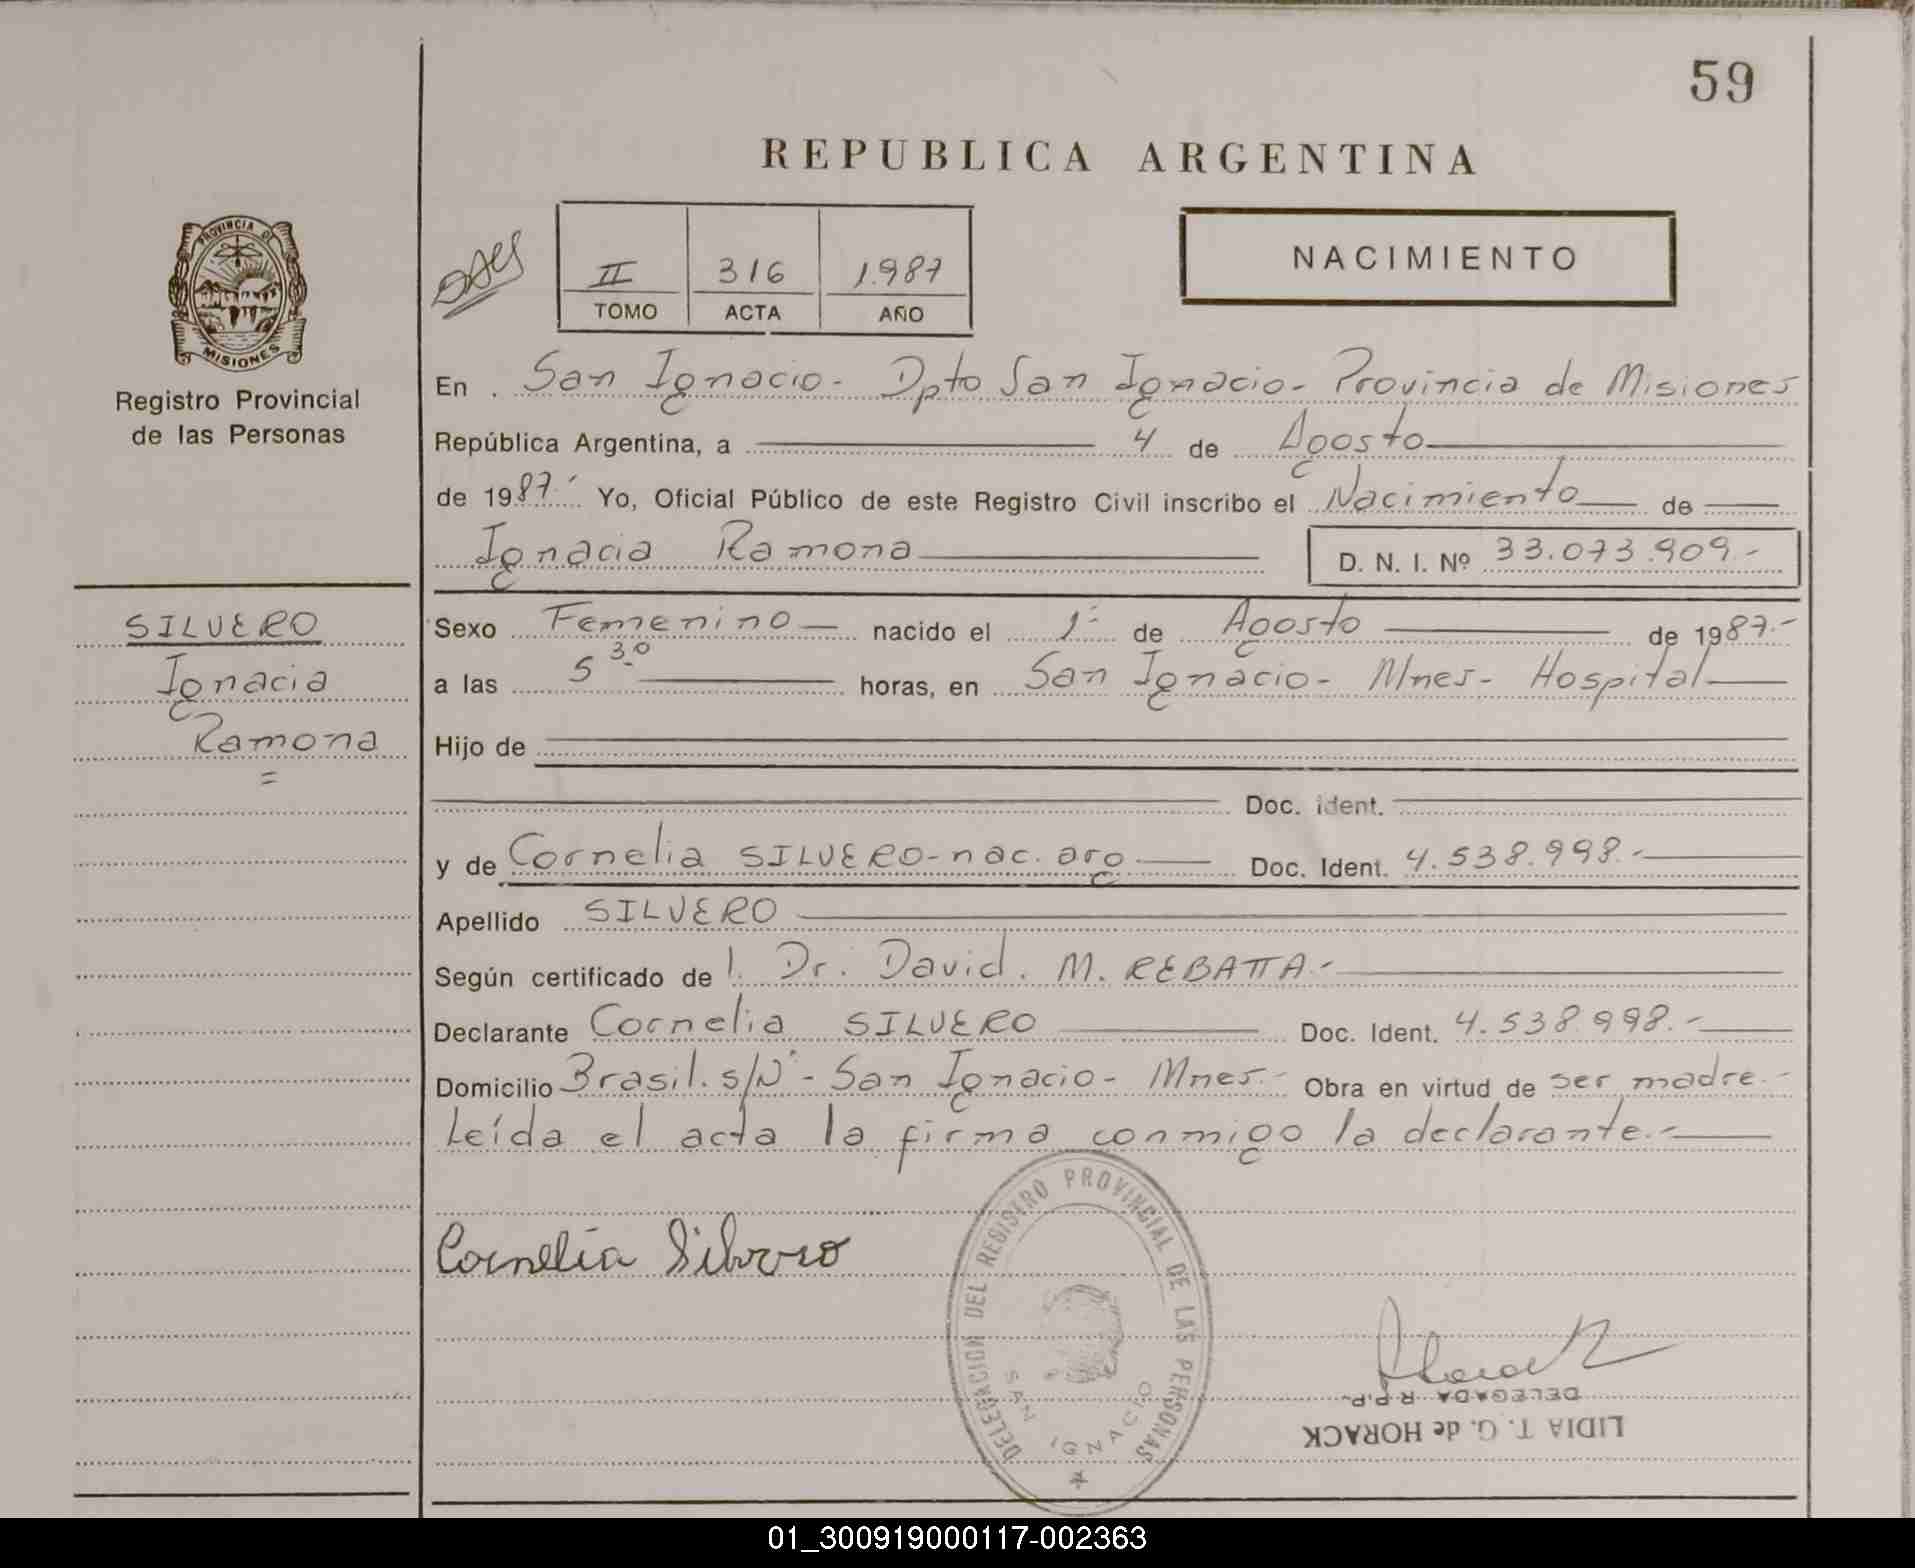 59
REPUBLICA ARGENTINA
II 316 1.987
TOMO ACTA AÑO
NACIMIENTO
PROVINCIA DE
MISIONES
Registro Provincial
de las Personas
En . San Ignacio - Dpto San Ignacio - Provincia de Misiones
República Argentina, a 4 de Agosto
de 1987.- Yo, Oficial Público de este Registro Civil inscribo el Nacimiento de
Ignacia Ramona D. N. I. Nº 33.073.909.-
SILVERO
Ignacia
Ramona
=
Sexo Femenino nacido el 1º de Agosto de 1987.-
a las 5 30 horas, en San Ignacio - Mnes - Hospital
Hijo de
Doc. ident.
y de Cornelia SILVERO - nac. arg. Doc. Ident. 4.538.998.-
Apellido SILVERO
Según certificado de l. Dr. David. M. REBATTA.-
Declarante Cornelia SILVERO Doc. Ident. 4.538.998.-
Domicilio Brasil. s/Nº - San Ignacio - Mnes.- Obra en virtud de ser madre.-
Leída el acta la firma conmigo la declarante.-
Cornelia Silvero
DELEGACION DEL REGISTRO PROVINCIAL DE LAS PERSONAS
SAN IGNACIO
DELEGADA R.P.P.
LIDIA T. G. de HORACK
01_300919000117-002363